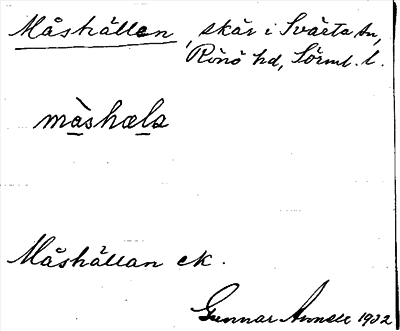 Måshällen, skär i Svärta sn,
Rönö hd, Sörml. l.
màshæla
Måshällan ek.
Gunnar 1932